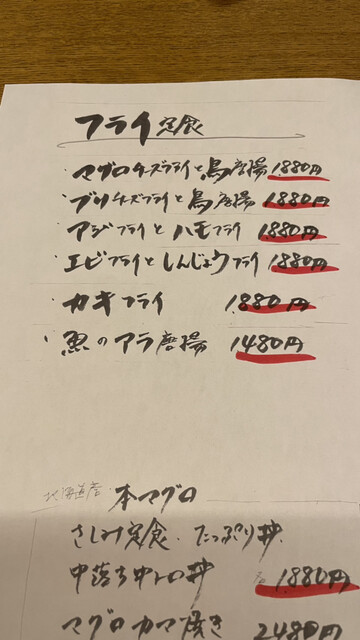 フライ定食
・マグロチーズフライと鳥唐揚 1.880円
・ブリチーズフライと鳥唐揚 1.880円
・アジフライとハモフライ 1.880円
・エビフライとしんじょうフライ 1.880円
・カキフライ 1.880円
・魚のアラ唐揚 1480円
北海道産 本マグロ
さしみ定食・たっぷり丼
中落ち中トロ丼 1.880円
マグロカマ焼き 2480円